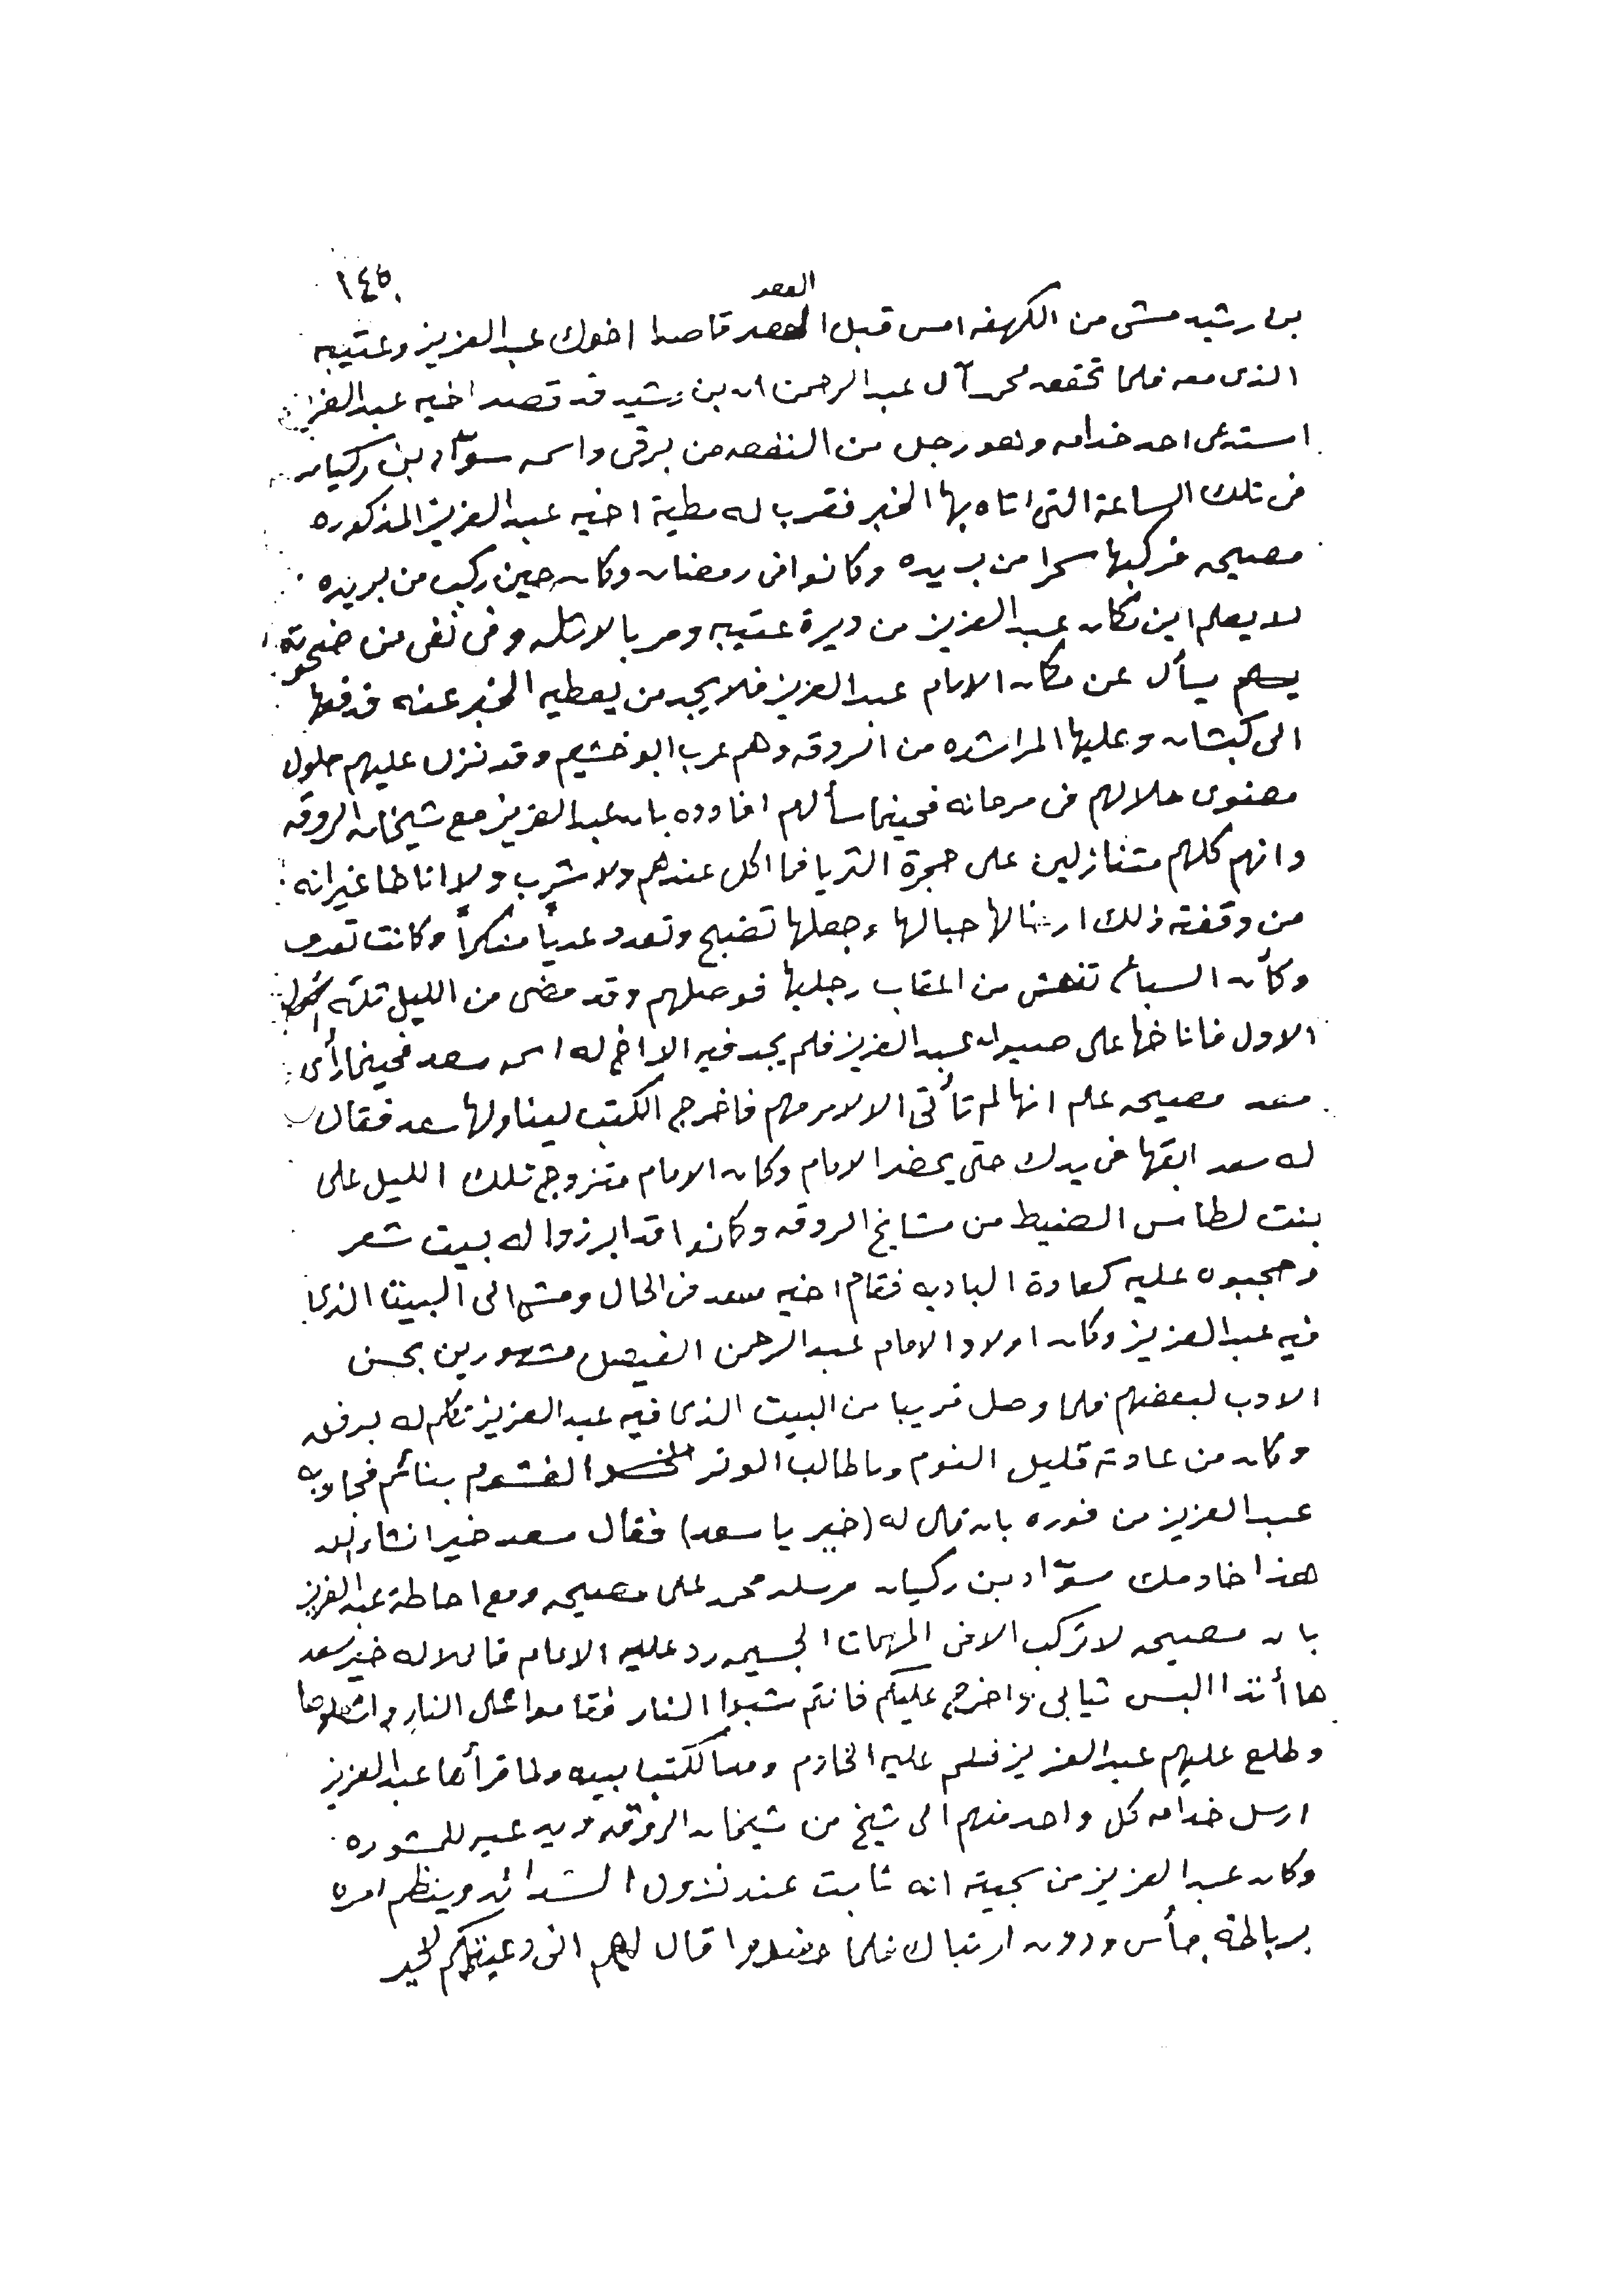 ١٤٥
العصر
بن رشيد مشى من الكهفه امس قبل العصر قاصدا اخوك عبدالعزيز وعتيبه
الذى معه فلما تحقق محمد آل عبدالرحمن ان بن رشيد قد قصد اخيه عبدالعزيز
استدعى احد خدامه وهو رجل من النفعه من برقى واسمه سوّاد بن ركيان
فى تلك الساعة التى اتاه بها الخبر فقرب له مطية اخيه عبدالعزيز المذكوره
مصيحه فركبها سحرا من بريده وكانوا فى رمضان وكان حين ركب من بريده
لا يعلم اين مكان عبدالعزيز من ديرة عتيبه ومر بالاثله وفى نفى من ضحوته
يسأل عن مكان الامام عبدالعزيز فلا يجد من يعطيه الخبر عنه فدفعها
الى كبشان وعليها المراشده من الروقه وهم عرب ابو خشيم وقد نزل عليهم حلول
مصنوى حلالهم فى مرحانه فحينما سألهم افادوه بان عبدالعزيز مع شيخان الروقه
وانهم كلهم متنازلين على حجرة الثريا فما اكل عندهم ولا شرب ولا اناخها غير انه
من وقفته ذلك ارخالها حبالها وجعلها تضبح وتعدو عدياً منكراً وكانت تعدو
وكأن السباع تنهش من اعقاب رجليها فوصلهم وقد مضى من الليل ثلثه
الاول فاناخها على صيوان عبدالعزيز فلم يجد فيه الا اخ له اسمه سعد فحينما رأى
سعد مصيحه علم انها لم تأتى الا لامر مهم فاخرج الكتب ليناولها سعد فقال
له سعد ابقها فى يدك حتى يحضر الامام وكان الامام متزوج تلك الليل على
بنت لطامى الضيط من مشايخ الروقه وكانوا قد ابرزوا له بيت شعر
وحجبوه عليه كعادة الباديه فقام اخيه سعد فى الحال ومشى الى البيت الذى
فيه عبدالعزيز وكان اولاد الامام عبدالرحمن الفيصل مشهورين بحسن
الادب لبعضهم فلما وصل قريبا من البيت الذى فيه عبدالعزيز تكلم له برفق
وكان من عادته قليل النوم وما طالب الوتر الغشوم بنائم فجاوبه
عبدالعزيز من فوره بان قال له (خير يا سعد) فقال سعد خير انشاء الله
هذا خادمك سوّاد بن ركيان مرسله محمد على مصيحه ومع احاطة عبدالعزيز
بان مصيحه لا تركب الا فى المهمات الجسيمه رد عليه الامام قائلا له خير سعد
ها أنذا البس ثيابى واخرج عليكم فانتم شبوا النار فقاموا على النار واشعلوها
وطلع عليهم عبدالعزيز فسلم عليه الخادم ومد الكتب بيده ولما قرأها عبدالعزيز
ارسل خدامه كل واحد منهم الى شيخ من شيخان الروقه يدعيه للمشوره
وكان عبدالعزيز من سجيته انه ثابت عند نزول الشدائد وينظم امره
برباطة جأش ودون ارتباك فلما حضروا قال لهم انى دعيتكم لخير